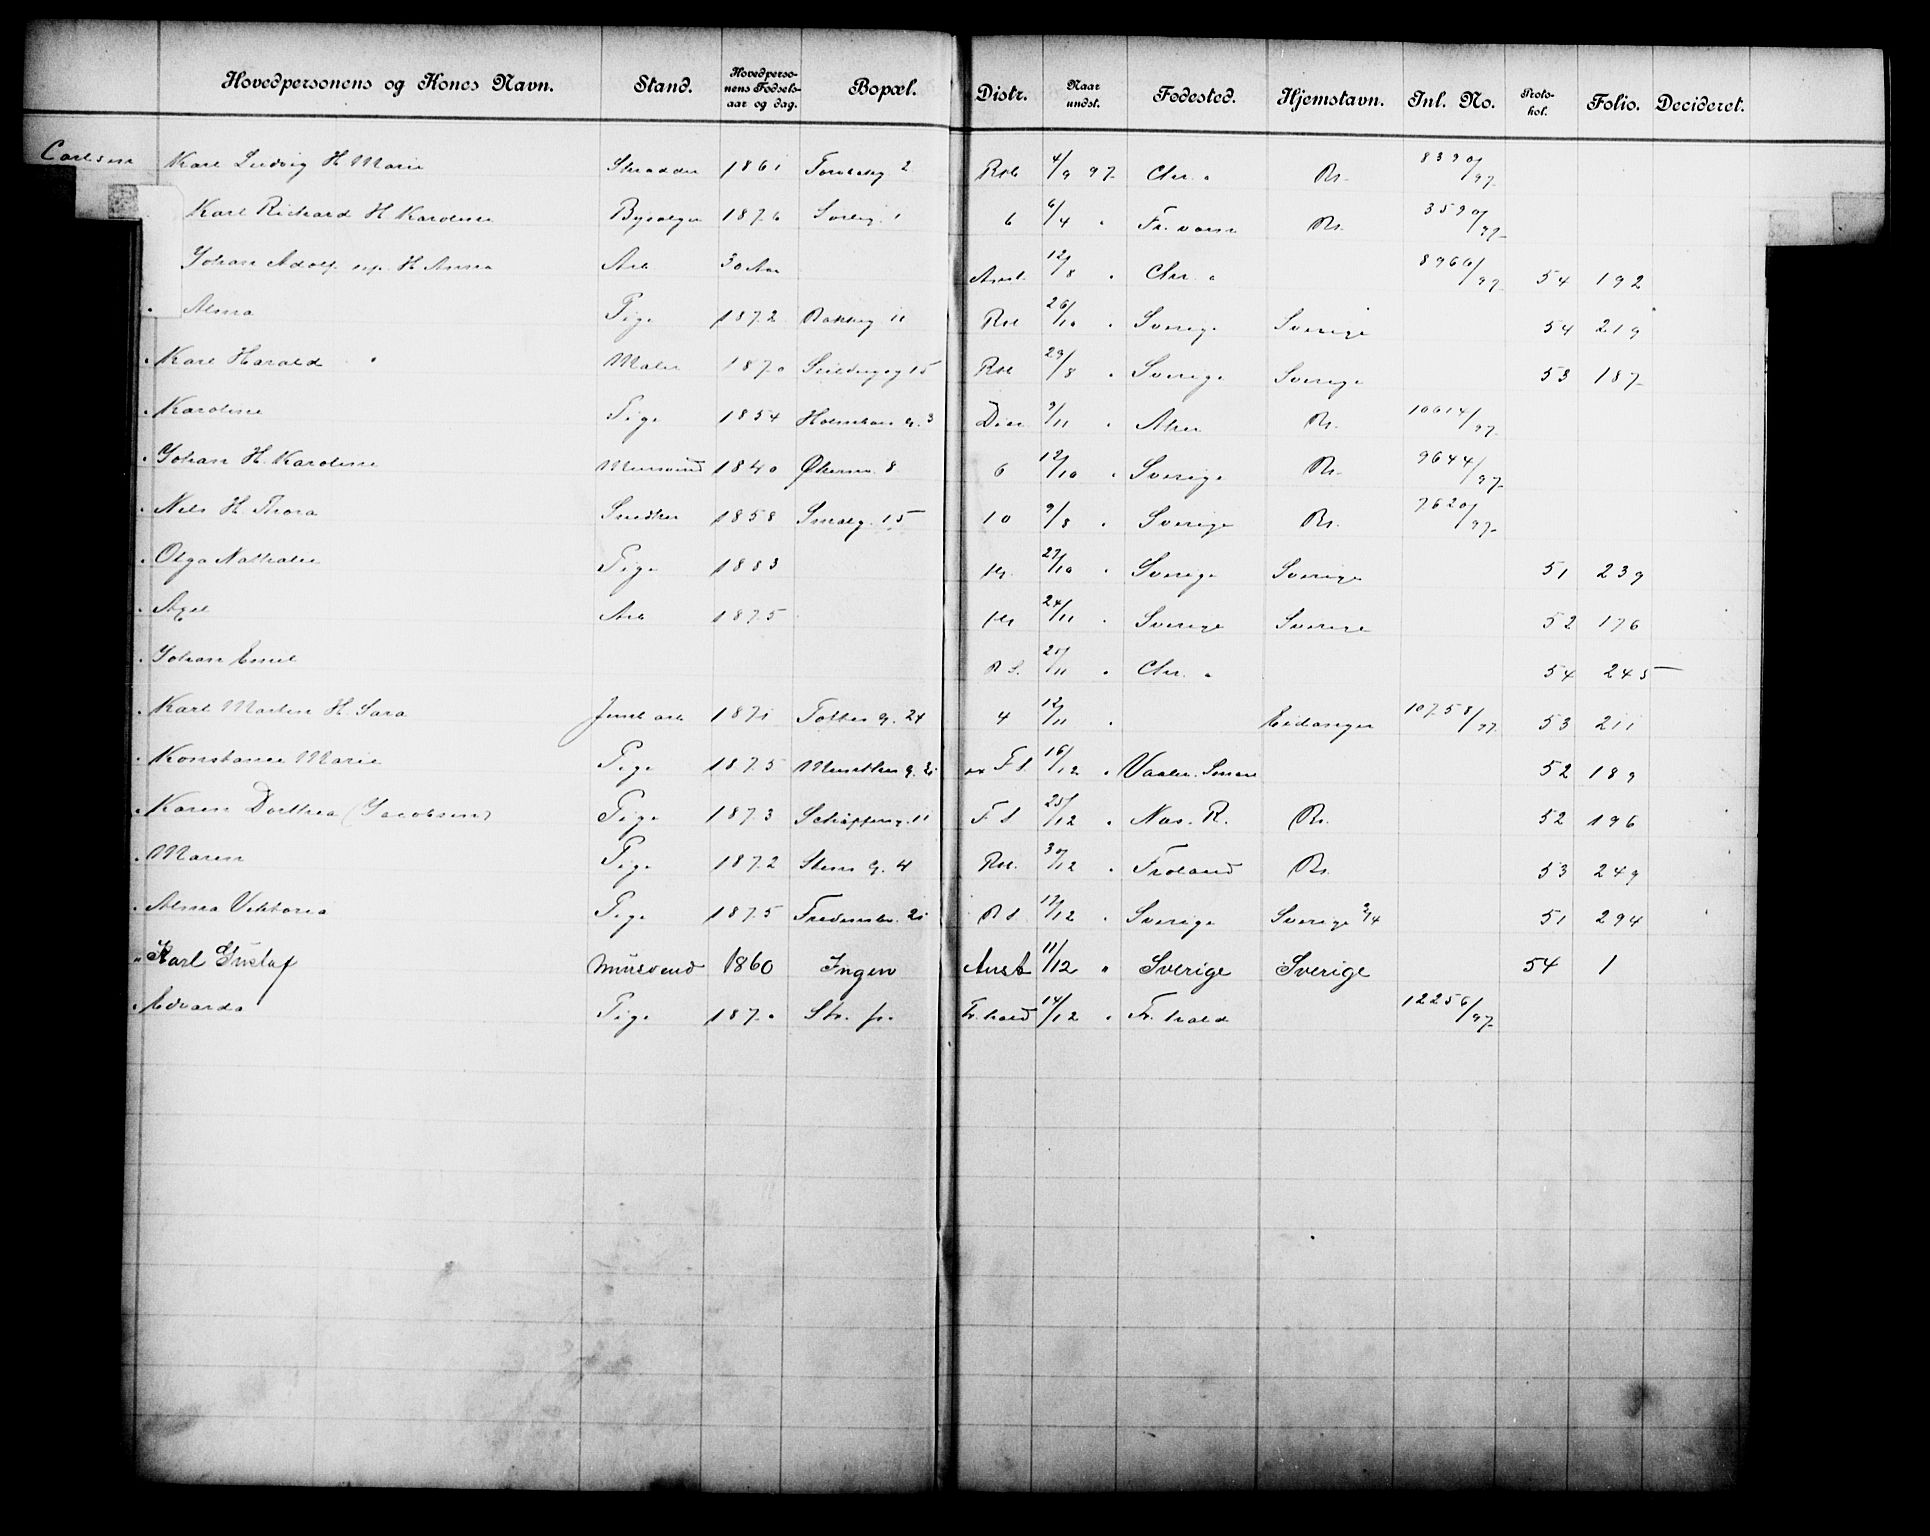 Hovedpersonens og Kones Navn. Stand. Hovedperso-nens Fødsels-aar og dag. Bopæl. Distr. Naar undst. Fødested. Hjemstavn. Inl. No. Proto-kol. Folio. Decideret.
Carlsen Karl Ludvig H Marie Skrædder 1861 2 4/9 97 Chr.a Kr. 8390/97
Karl Rickard H Karoline 1876 1 6 6/4 " Fr. værn Kr. 3590/97
Johan Adolf H Anna Arb 30 Aar 12/8 " Chr.a 8966/97 54 192
" Alma Pige 1872 Bakkeg 11 26/10 " Sverige Sverige 54 219
" Karl Harald Maler 1870 15 29/8 " Sverige Sverige 53 187
" Karoline Pige 1854 3 9/11 " Aker Kr. 10614/97
" Johan H. Karoline Mursvend 1840 Økernv. 8 6 12/10 " Sverige Kr. 9644/97
" Nils H. Thora Snedker 1858 Smalg. 15 10 9/8 " Sverige Kr. 7620/97
" Olga Nathalie Pige 1883 27/10 " Sverige Sverige 51 239
" Axel Arb 1875 24/11 " Sverige Sverige 52 176
" Johan Emil R S. /11 " Chr.a 54 245
" Karl Martin H. Sara Jernb arb 1871 Toftes G. 24 4 12/11 " Eidanger 10758/97 53 211
" Konstance Marie Pige 1875 Munthes G. F S 16/12 " Vaaler. 52 189
" Karen Dorthea (Jacobsen) Pige 1873 11 F S /12 " Nas. R. Kr. 52 196
" Maren Pige 1872 Stens G. 4 30/12 " Froland Kr. 53 249
" Alma Viktoria Pige 1875 R S 17/12 " Sverige Sverige 51 294
" Karl Gustaf Mursvend 1860 Ingen Anst 11/12 " Sverige Sverige 54 1
" Edvarda Pige 1870 Fr.hald 14/12 " Fr. hald 12256/97